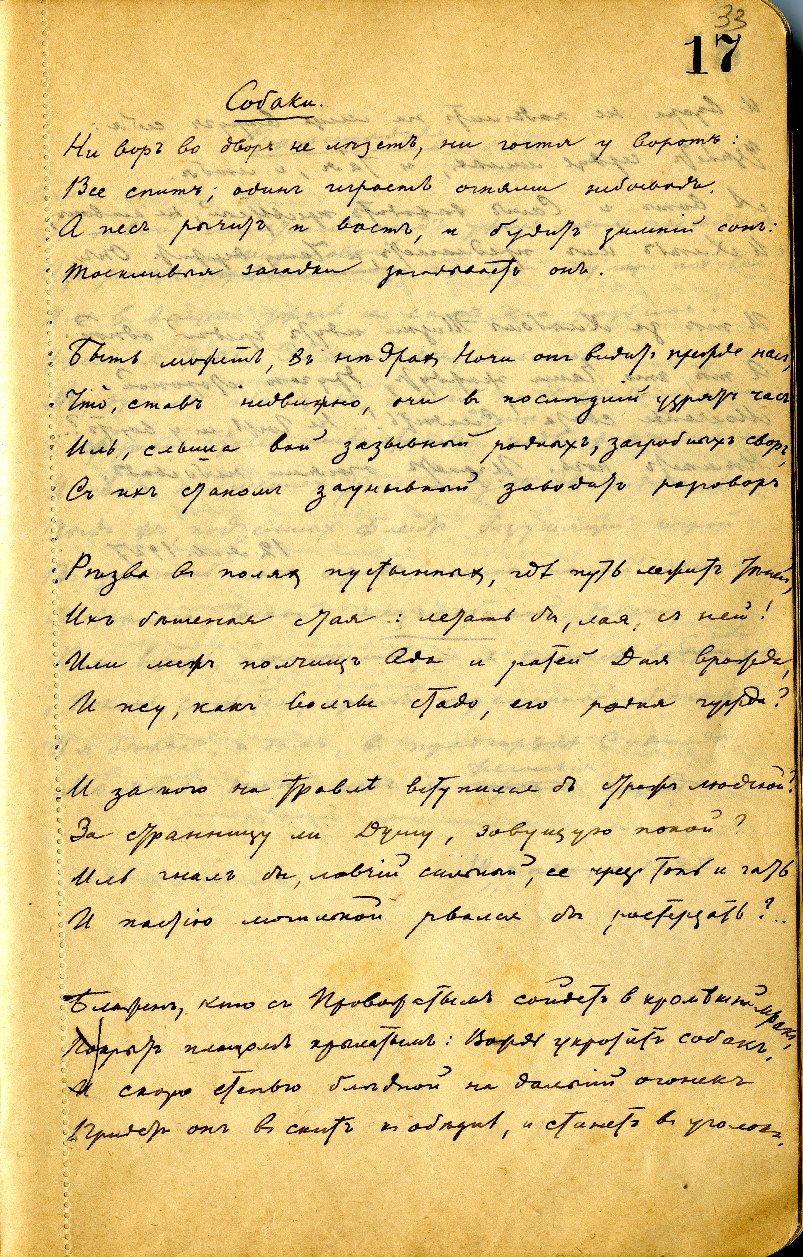 33
17
Собаки.
Ни воръ во дворъ не лѣзетъ, ни гостя у воротъ:
Все спитъ; одинъ играетъ огнями небосводъ.
А песъ рычитъ и воетъ, и будитъ зимній сонъ:
Тоскливыя загадки загадываетъ онъ.
Быть можетъ, въ нѣдрахъ Ночи онъ видитъ прежде насъ,
Что, ставъ недвижно, очи въ послѣдній узрятъ часъ
Иль, слыша вой зазывный родныхъ, загробныхъ своръ,
Съ ихъ станомъ заунывный заводитъ разговоръ
Рѣзва въ поляхъ пустынныхъ, гдѣ путь лежитъ тѣней,
Ихъ бѣшеная стая: летать бы, лая, съ ней!
Или межъ полчищъ Ада и ратей Дня вражда,
И псу, какъ волчье стадо, его родня чужда?
И за кого на травлѣ вступился бъ стражъ людской?
За странницу ли Душу, зовущую покой?
Иль гналъ бы, ловчій сильный, ее чрезъ топь и гать
И пастію могильной рвался бы растерзать?..
Блаженъ, кто съ Провожатымъ сойдетъ въ кромѣшній мракъ,
Покрытъ плащомъ крылатымъ: Вождь укротитъ собакъ.
И скоро степью блѣдной на дальній огонекъ
Придетъ онъ въ скитъ къ обѣднѣ, и станетъ въ уголокъ.